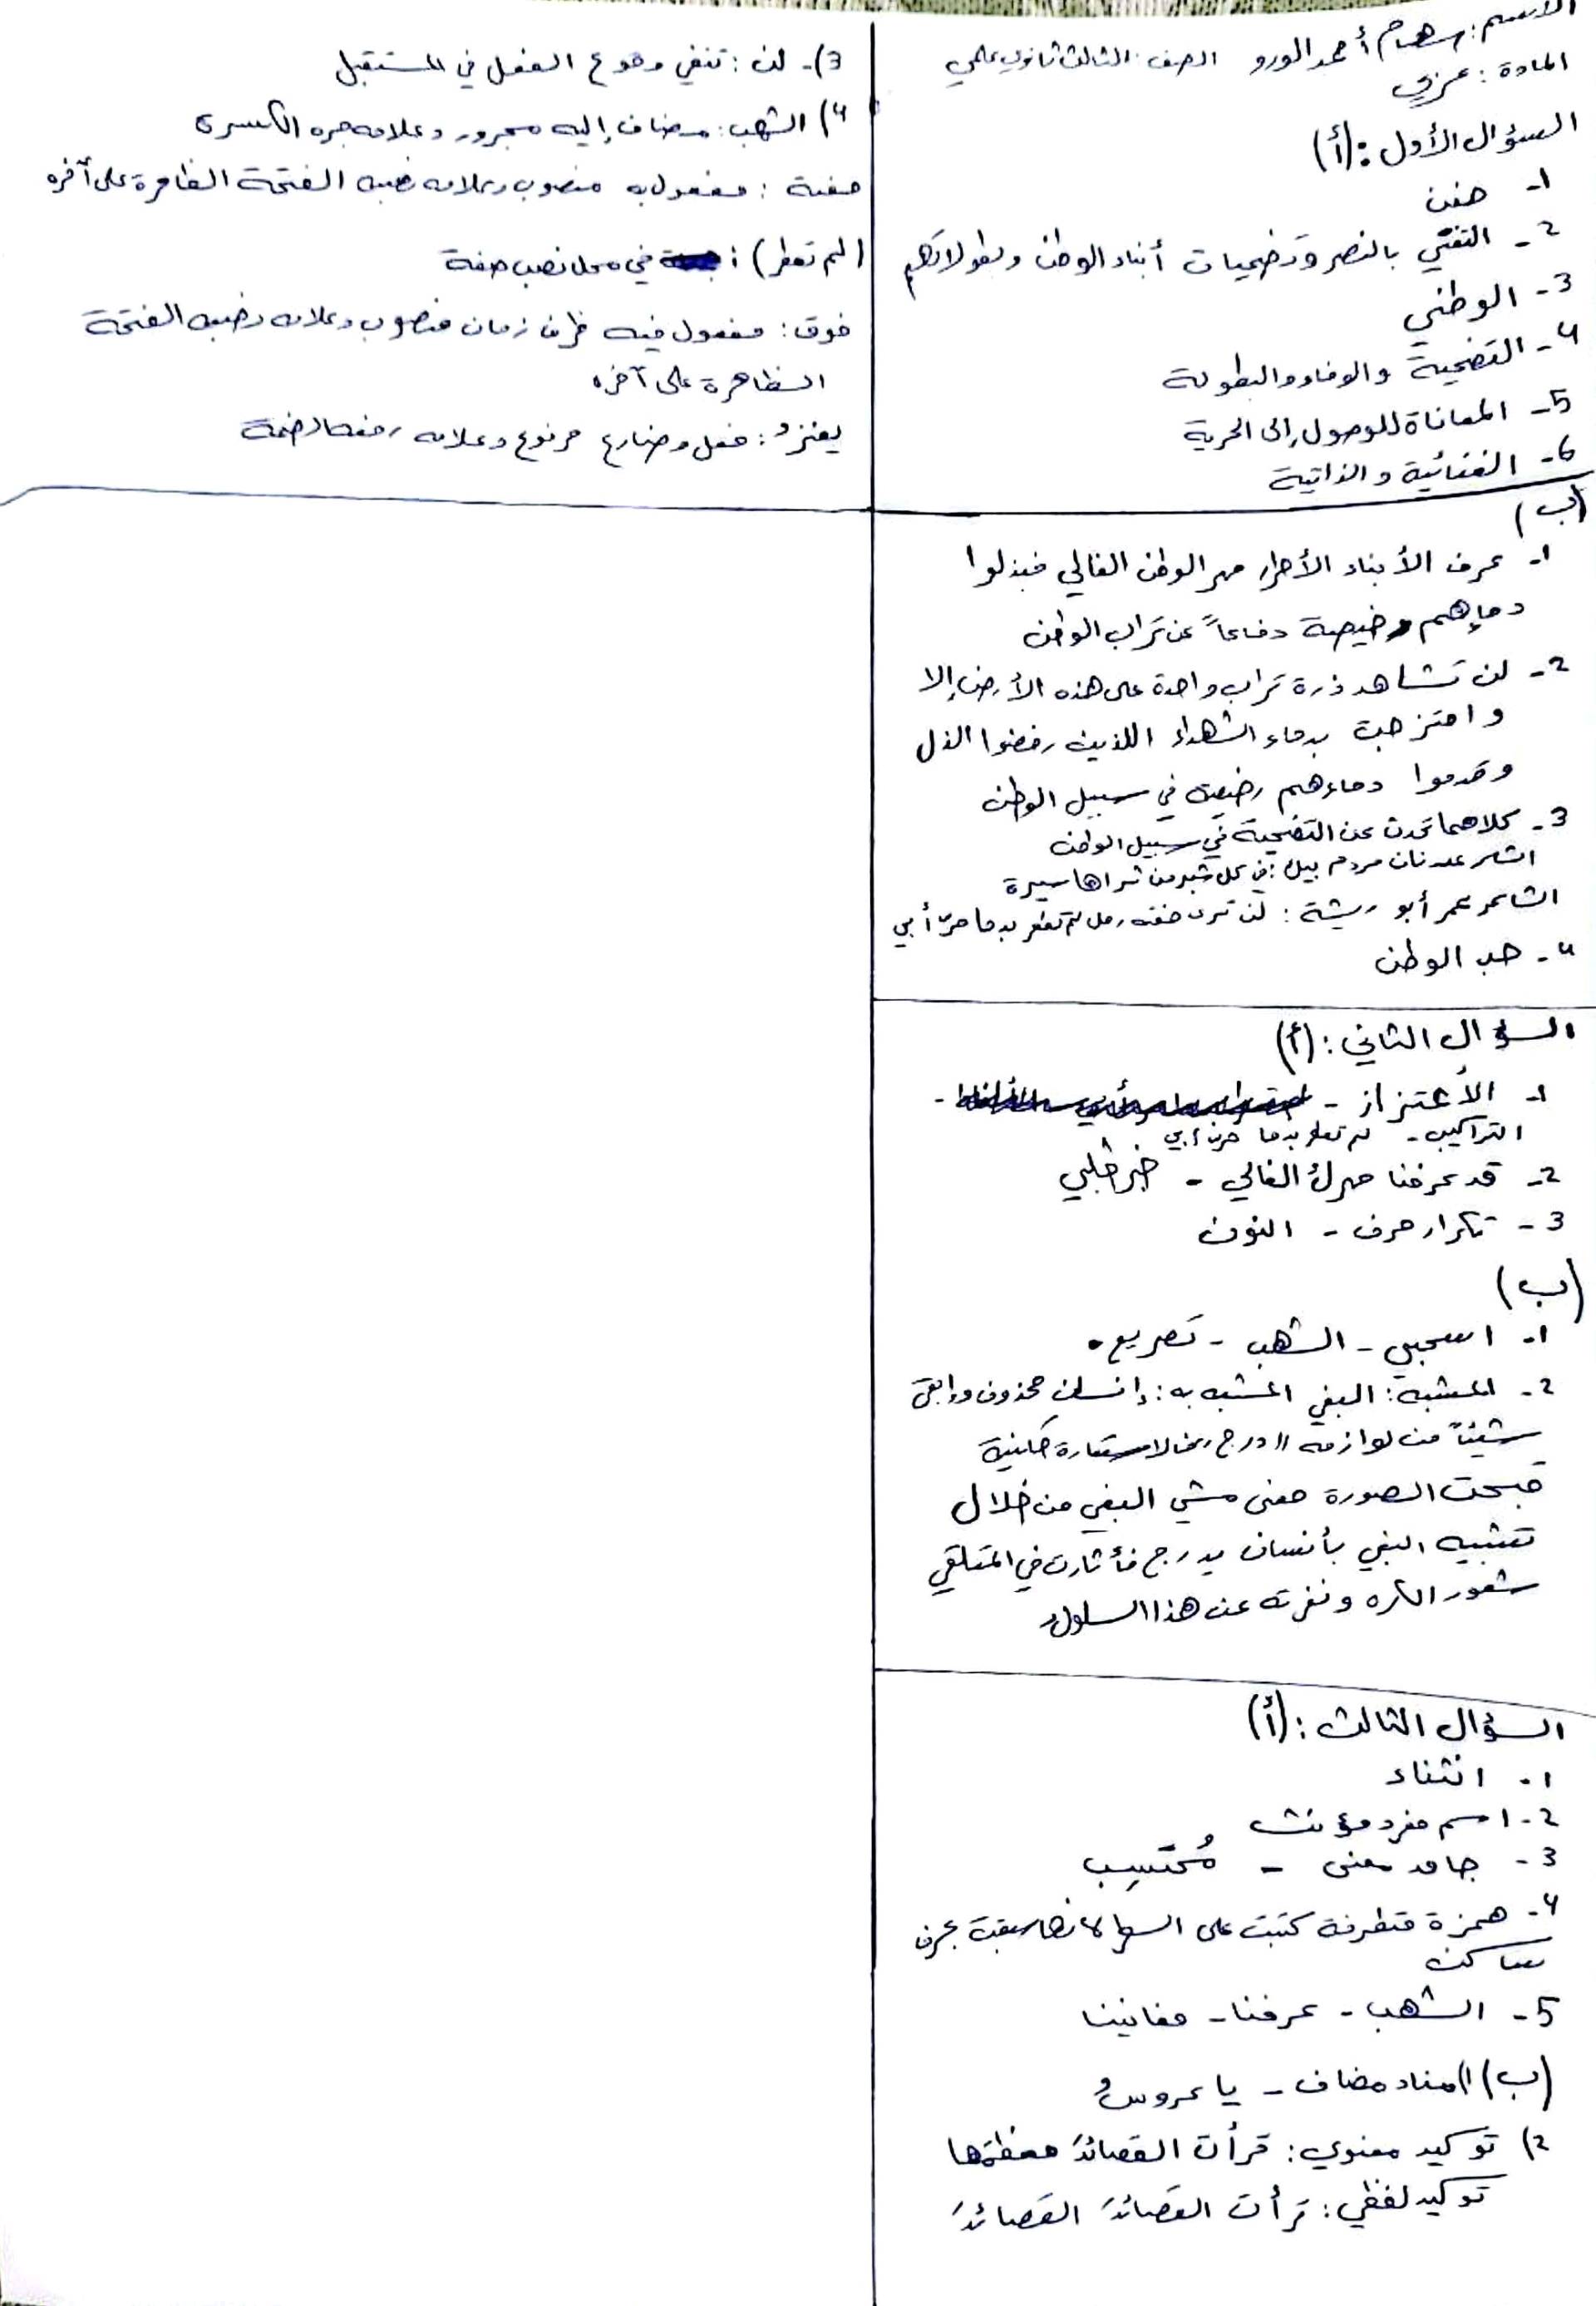 الاسم: سهام أحمد الورو الصف: الثالث ثانوي علمي
المادة: عربي
السؤال الأول: (أ)
1- حفن
2- التغني بالنصر وتضحيات أبناء الوطن وبطولاتهم
3- الوطني
4- التضحية والوفاء والبطولة
5- المعاناة للوصول إلى الحرية
6- الغنائية والذاتية
(ب)
1- عرف الأبناء الأحرار مهر الوطن الغالي فبذلوا
دماءهم رخيصة دفاعاً عن تراب الوطن
2- لن تشاهد ذرة تراب واحدة على هذه الأرض إلا
وامتزجت بدماء الشهداء اللذين رفضوا الذل
وقدموا دماءهم رخيصة في سبيل الوطن
3- كلاهما تحدث عن التضحية في سبيل الوطن
الشاعر عدنان مردم بيك: في كل شبر من ثراها سيرة
الشاعر عمر أبو ريشة: لن تري حفنة رمل لم تعطر بدما حرّ أبي
4- حب الوطن
السؤال الثاني: (أ)
1- الأعتزاز -
التراكيب - لم تعطر بدما حرّ أبي
2- قد عرفنا مهرك الغالي - خبر طلبي
3- تكرار حرف - النون
(ب)
1- اسحبي - الشهب - تصريع.
2- المشبه: البغي المشبه به: إنسان محذوف وابقى
شيئاً من لوازمه درج الاستعارة مكنية
قبحت الصورة معنى مشي البغي من خلال
تشبيه البغي بأنسان يدرج فأثارت في المتلقي
شعور الكره ونفرته عن هذا السلوك
السؤال الثالث: (أ)
1- انثناء
2- اسم مفرد مؤنث
3- جامد معنى - مُحتَسِب
4- همزة متطرفة كتبت على السطر لانها سبقت بحرف
ساكن
5- الشهب - عرفنا - مغانينا
(ب) 1) مناد مضاف - يا عروسُ
2) توكيد معنوي: قرأت القصائدَ معظمَها
توكيد لفظي: قرأت القصائدَ القصائدَ
3)- لن: تنفي وقوع الفعل في المستقبل
4) الشهب: مضاف إليه مجرور وعلامه جره الكسرة
حفنة: مفعول به منصوب وعلامه نصبه الفتحة الظاهرة على آخره
(لم تعطر): في محل نصب صفة
فوق: مفعول فيه ظرف زمان منصوب وعلامه نصبه الفتحة
الظاهرة على آخره
يعتزُ: فعل مضارع مرفوع وعلامه رفعه الضمة